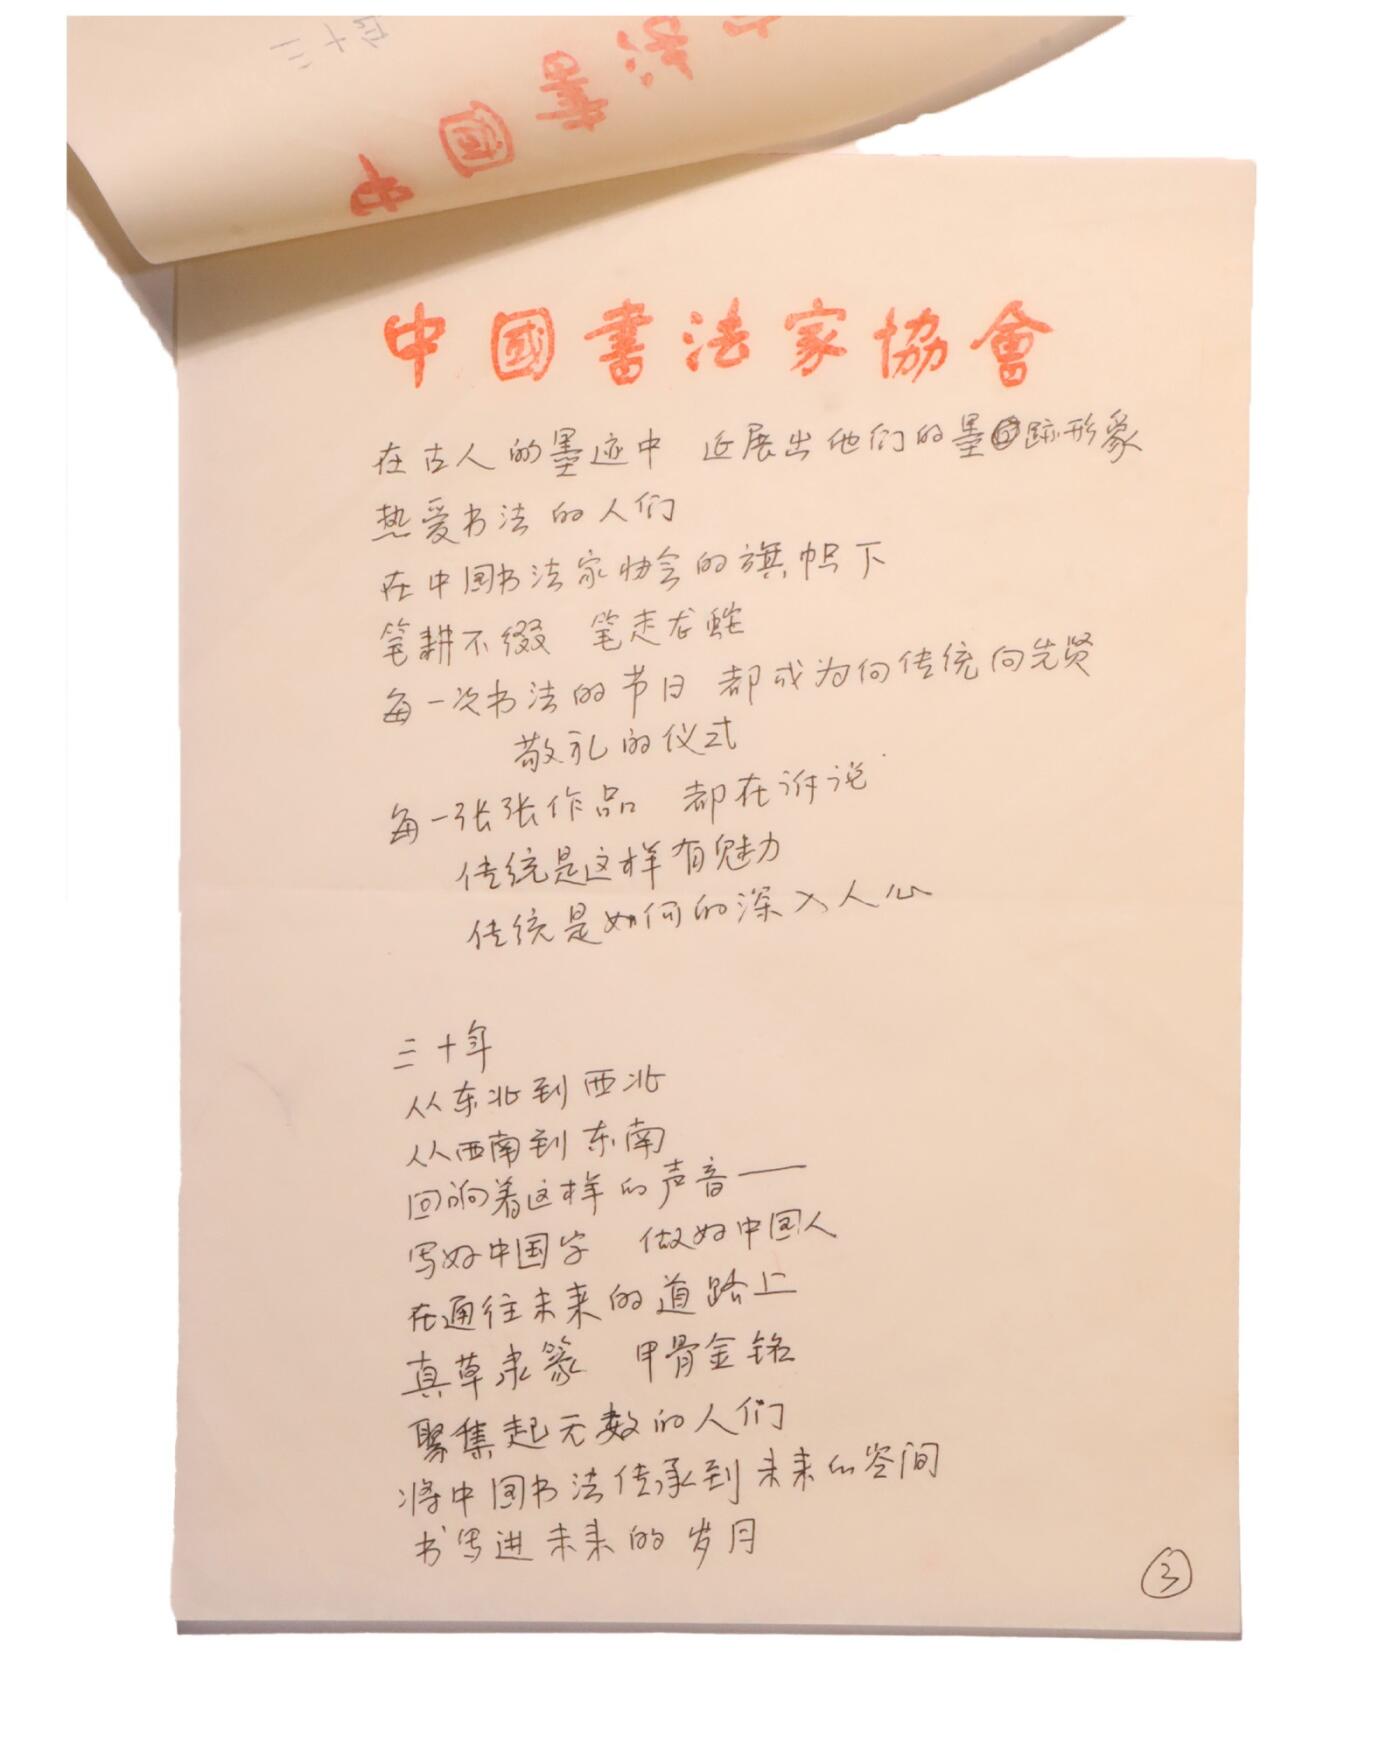 中國書
中國書法家協會
在古人的墨迹中 近展出他们的墨跡形象
热爱书法的人们
在中国书法家协会的旗帜下
笔耕不缀 笔走龙蛇
每一次书法的节日 都成为向传统向先贤
敬礼的仪式
每一张张作品 都在诉说
传统是这样有魅力
传统是如何的深入人心
三十年
从东北到西北
从西南到东南
回响着这样的声音——
写好中国字 做好中国人
在通往未来的道路上
真草隶篆 甲骨金铭
聚集起无数的人们
将中国书法传承到未来的空间
书写进未来的岁月
③